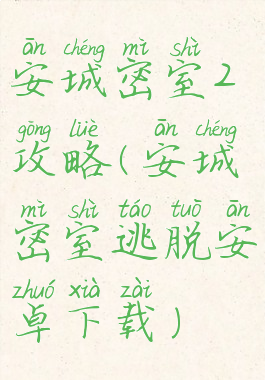 ān chéng mì shì
安城密室2
gòng lüè ān chéng
攻略(安城
mì shì táo tuō ān
密室逃脱安
zhuó xià zài
卓下载)